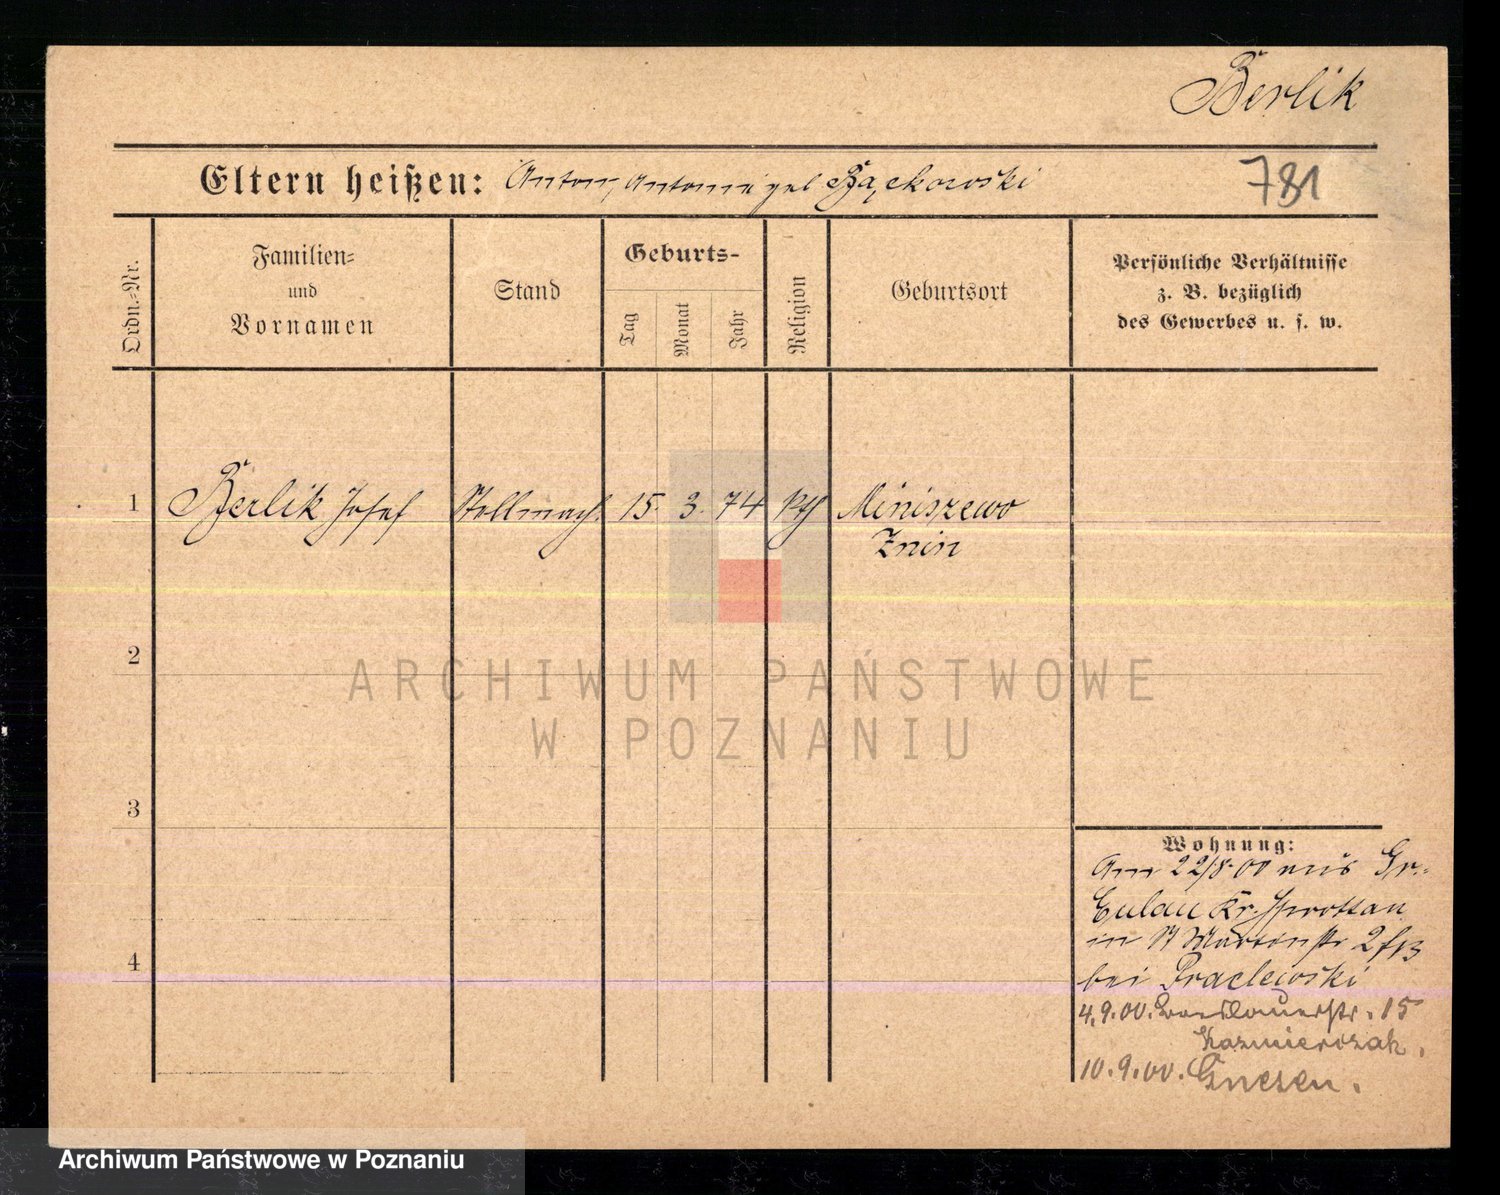 Berlik
Eltern heißen: Anton, Antonie geb Bąckowski
781
Ordn.-Nr.
Familien-
und
Vornamen
Stand
Geburts-
Tag
Monat
Jahr
Religion
Geburtsort
Persönliche Verhältnisse
z. B. bezüglich
des Gewerbes u. s. w.
1 Berlik Josef Stellmach. 15. 3. 74 kth Miniszewo
Znin
2
ARCHIWUM PAŃSTWOWE
W POZNANIU
3
Wohnung:
Am 22/8 00 aus Gr.
Eulau Kr. Sprottau
in St Martinstr
4
bei
4.9.00. Breslauerstr. 15
Kazmierczak.
10.9.00. Gnesen.
Archiwum Państwowe w Poznaniu